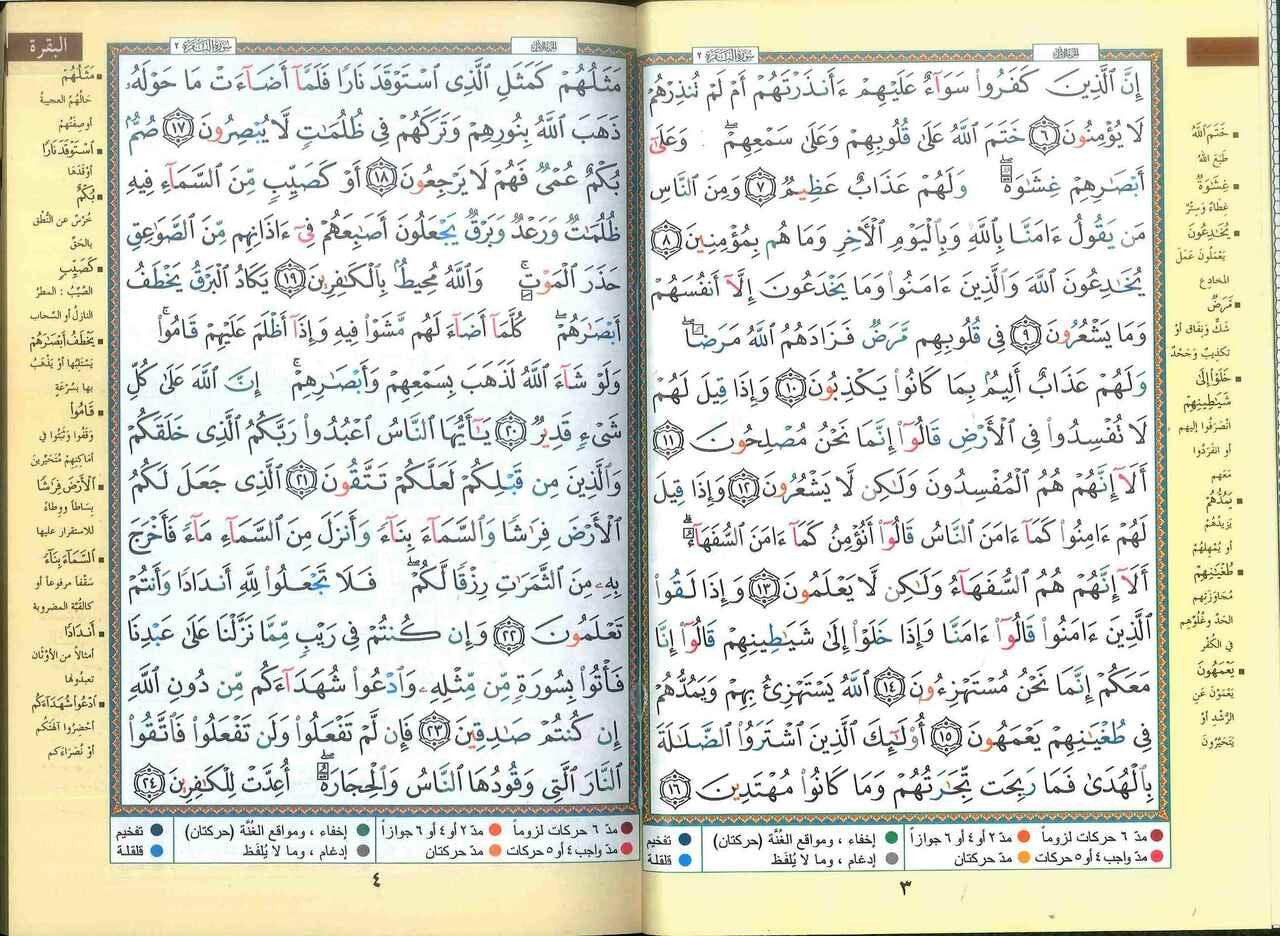 الجزء الأول
سورة البقرة ٢
إِنَّ ٱلَّذِينَ كَفَرُوا۟ سَوَآءٌ عَلَيْهِمْ ءَأَنذَرْتَهُمْ أَمْ لَمْ تُنذِرْهُمْ
لَا يُؤْمِنُونَ ٦ خَتَمَ ٱللَّهُ عَلَىٰ قُلُوبِهِمْ وَعَلَىٰ سَمْعِهِمْ ۖ وَعَلَىٰٓ
أَبْصَٰرِهِمْ غِشَٰوَةٌ ۖ وَلَهُمْ عَذَابٌ عَظِيمٌ ٧ وَمِنَ ٱلنَّاسِ
مَن يَقُولُ ءَامَنَّا بِٱللَّهِ وَبِٱلْيَوْمِ ٱلْءَاخِرِ وَمَا هُم بِمُؤْمِنِينَ ٨
يُخَٰدِعُونَ ٱللَّهَ وَٱلَّذِينَ ءَامَنُوا۟ وَمَا يَخْدَعُونَ إِلَّآ أَنفُسَهُمْ
وَمَا يَشْعُرُونَ ٩ فِى قُلُوبِهِم مَّرَضٌ فَزَادَهُمُ ٱللَّهُ مَرَضًا ۖ
وَلَهُمْ عَذَابٌ أَلِيمٌۢ بِمَا كَانُوا۟ يَكْذِبُونَ ١٠ وَإِذَا قِيلَ لَهُمْ
لَا تُفْسِدُوا۟ فِى ٱلْأَرْضِ قَالُوٓا۟ إِنَّمَا نَحْنُ مُصْلِحُونَ ١١
أَلَآ إِنَّهُمْ هُمُ ٱلْمُفْسِدُونَ وَلَٰكِن لَّا يَشْعُرُونَ ١٢ وَإِذَا قِيلَ
لَهُمْ ءَامِنُوا۟ كَمَآ ءَامَنَ ٱلنَّاسُ قَالُوٓا۟ أَنُؤْمِنُ كَمَآ ءَامَنَ ٱلسُّفَهَآءُ ۗ
أَلَآ إِنَّهُمْ هُمُ ٱلسُّفَهَآءُ وَلَٰكِن لَّا يَعْلَمُونَ ١٣ وَإِذَا لَقُوا۟
ٱلَّذِينَ ءَامَنُوا۟ قَالُوٓا۟ ءَامَنَّا وَإِذَا خَلَوْا۟ إِلَىٰ شَيَٰطِينِهِمْ قَالُوٓا۟ إِنَّا
مَعَكُمْ إِنَّمَا نَحْنُ مُسْتَهْزِءُونَ ١٤ ٱللَّهُ يَسْتَهْزِئُ بِهِمْ وَيَمُدُّهُمْ
فِى طُغْيَٰنِهِمْ يَعْمَهُونَ ١٥ أُو۟لَٰٓئِكَ ٱلَّذِينَ ٱشْتَرَوُا۟ ٱلضَّلَٰلَةَ
بِٱلْهُدَىٰ فَمَا رَبِحَت تِّجَٰرَتُهُمْ وَمَا كَانُوا۟ مُهْتَدِينَ ١٦
خَتَمَ اللهُ
طَبَعَ اللهُ
غِشَٰوَةٌ
غِطَاءٌ وَسِتْرٌ
يُخَٰدِعُونَ
يَعْمَلُونَ عَمَلَ
المخادِع
مَرَضٌ
شَكٌّ وَنِفَاق أوْ
تكذيبٌ وَجَحْدٌ
خَلَوْا إِلَىٰ
شَيَٰطِينِهِمْ
انْصَرَفُوا إليهم
أو انْفَرَدُوا
مَعَهم
يَمُدُّهُمْ
يَزِيدُهُمْ
أو يُمْهِلُهُمْ
طُغْيَٰنِهِمْ
مُجَاوَزَتِهِم
الحَدَّ وَغُلُوِّهِم
في الكُفْر
يَعْمَهُونَ
يَعْمَوْنَ عَنِ
الرُّشْدِ أوْ
يَتَحَيَّرُونَ
مدّ ٦ حركات لزوماً مدّ ٢ أو ٤ أو ٦ جوازاً إخفاء ، ومواقع الغُنَّة (حركتان) تفخيم
مدّ واجب ٤ أو ٥ حركات مدّ حركتان إدغام ، وما لا يُلفَظ قلقلة
٣
البقرة
الجزء الأول
سورة البقرة ٢
مَثَلُهُمْ كَمَثَلِ ٱلَّذِى ٱسْتَوْقَدَ نَارًا فَلَمَّآ أَضَآءَتْ مَا حَوْلَهُۥ
ذَهَبَ ٱللَّهُ بِنُورِهِمْ وَتَرَكَهُمْ فِى ظُلُمَٰتٍ لَّا يُبْصِرُونَ ١٧ صُمٌّۢ
بُكْمٌ عُمْىٌ فَهُمْ لَا يَرْجِعُونَ ١٨ أَوْ كَصَيِّبٍ مِّنَ ٱلسَّمَآءِ فِيهِ
ظُلُمَٰتٌ وَرَعْدٌ وَبَرْقٌ يَجْعَلُونَ أَصَٰبِعَهُمْ فِىٓ ءَاذَانِهِم مِّنَ ٱلصَّوَٰعِقِ
حَذَرَ ٱلْمَوْتِ ۚ وَٱللَّهُ مُحِيطٌۢ بِٱلْكَٰفِرِينَ ١٩ يَكَادُ ٱلْبَرْقُ يَخْطَفُ
أَبْصَٰرَهُمْ ۖ كُلَّمَآ أَضَآءَ لَهُم مَّشَوْا۟ فِيهِ وَإِذَآ أَظْلَمَ عَلَيْهِمْ قَامُوا۟ ۚ
وَلَوْ شَآءَ ٱللَّهُ لَذَهَبَ بِسَمْعِهِمْ وَأَبْصَٰرِهِمْ ۚ إِنَّ ٱللَّهَ عَلَىٰ كُلِّ
شَىْءٍ قَدِيرٌ ٢٠ يَٰٓأَيُّهَا ٱلنَّاسُ ٱعْبُدُوا۟ رَبَّكُمُ ٱلَّذِى خَلَقَكُمْ
وَٱلَّذِينَ مِن قَبْلِكُمْ لَعَلَّكُمْ تَتَّقُونَ ٢١ ٱلَّذِى جَعَلَ لَكُمُ
ٱلْأَرْضَ فِرَٰشًا وَٱلسَّمَآءَ بِنَآءً وَأَنزَلَ مِنَ ٱلسَّمَآءِ مَآءً فَأَخْرَجَ
بِهِۦ مِنَ ٱلثَّمَرَٰتِ رِزْقًا لَّكُمْ ۖ فَلَا تَجْعَلُوا۟ لِلَّهِ أَندَادًا وَأَنتُمْ
تَعْلَمُونَ ٢٢ وَإِن كُنتُمْ فِى رَيْبٍ مِّمَّا نَزَّلْنَا عَلَىٰ عَبْدِنَا
فَأْتُوا۟ بِسُورَةٍ مِّن مِّثْلِهِۦ وَٱدْعُوا۟ شُهَدَآءَكُم مِّن دُونِ ٱللَّهِ
إِن كُنتُمْ صَٰدِقِينَ ٢٣ فَإِن لَّمْ تَفْعَلُوا۟ وَلَن تَفْعَلُوا۟ فَٱتَّقُوا۟
ٱلنَّارَ ٱلَّتِى وَقُودُهَا ٱلنَّاسُ وَٱلْحِجَارَةُ ۖ أُعِدَّتْ لِلْكَٰفِرِينَ ٢٤
مَثَلُهُمْ
حَالُهُمُ العجيبةُ
أو صِفَتُهمْ
ٱسْتَوْقَدَ نَارًا
أوْقَدَهَا
بُكْمٌ
خُرْسٌ عن النُّطْقِ
بالحَقِّ
كَصَيِّبٍ
الصَّيِّبُ : المطرُ
النازلُ أو السَّحاب
يَخْطَفُ أَبْصَٰرَهُمْ
يَسْتَلِبُها أوْ يَذْهَبُ
بها بسُرْعَةٍ
قَامُوا۟
وَقَفُوا وَثَبَتُوا في
أماكِنِهِمْ مُتَحَيِّرينَ
ٱلْأَرْضَ فِرَٰشًا
بِسَاطًا ووِطَاءً
للاستقرار عليها
ٱلسَّمَآءَ بِنَآءً
سَقْفاً مرفوعاً أو
كالقُبَّة المضروبة
أَندَادًا
أمثالاً من الأوْثَان
تعبدُونها
ٱدْعُوا۟ شُهَدَآءَكُم
أحْضِرُوا آلهتَكُم
أوْ نُصَرَاءَكم
مدّ ٦ حركات لزوماً مدّ ٢ أو ٤ أو ٦ جوازاً إخفاء ، ومواقع الغُنَّة (حركتان) تفخيم
مدّ واجب ٤ أو ٥ حركات مدّ حركتان إدغام ، وما لا يُلفَظ قلقلة
٤